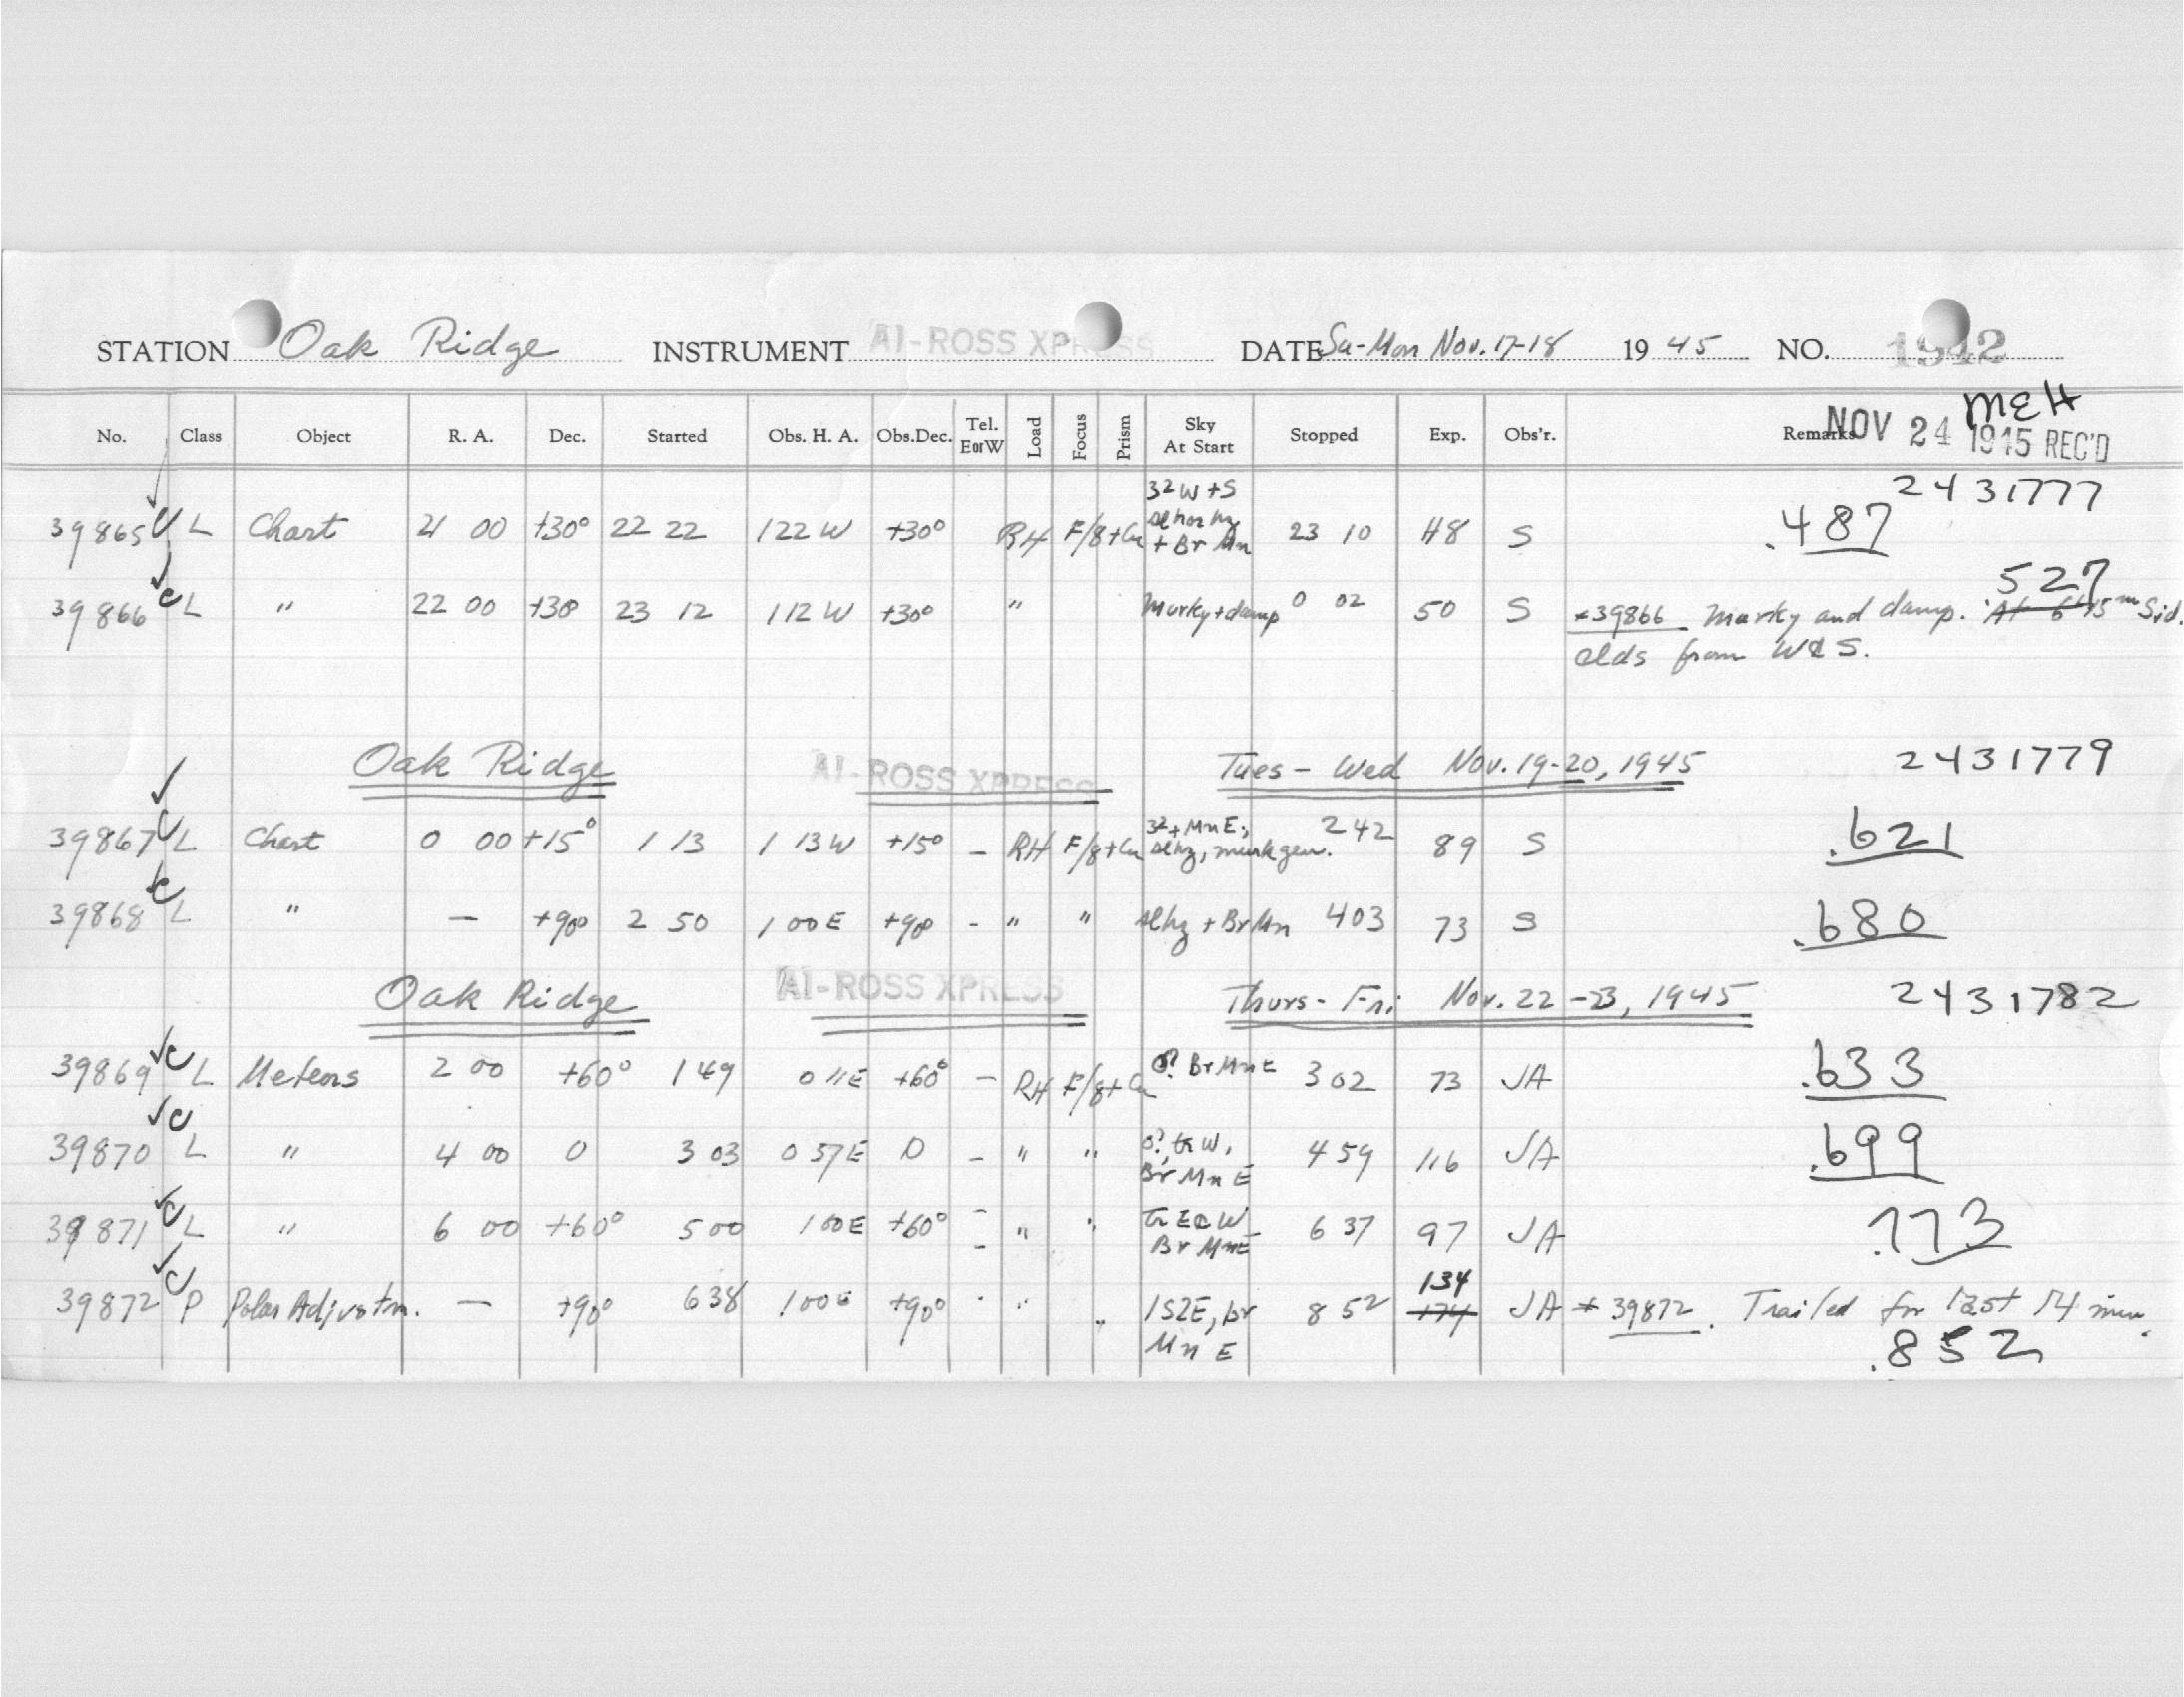 STATION Oak Ridge INSTRUMENT AI-ROSS XPRESS DATE Su-Mon Nov. 17-18 1945 NO. 1942
MEH
NOV 24 1945 REC'D
No. Class Object R. A. Dec. Started Obs. H. A. Obs.Dec. Tel. E or W Load Focus Prism Sky At Start Stopped Exp. Obs'r. Remarks
2431777
39865 C L Chart 21 00 +30° 22 22 1 22 W +30° RH F/8+Cu 32 W + S + Br Mn 23 10 48 S .487
.527
39866 C L " 22 00 +30 23 12 1 12 W +30° " Murky+damp 0 02 50 S *39866 Murky and damp. At 6h 15m Sid.
clds from W & S.
Oak Ridge AI-ROSS XPRESS Tues - Wed Nov. 19-20, 1945 2431779
39867 C L Chart 0 00 +15° 1 13 1 13 W +15° - RH F/8+Cu 32 + Mn E; sl hz, murk gen. 2 42 89 S .621
39868 C L " — +90 2 50 1 00 E +90 - " " sl hz + Br Mn 4 03 73 S .680
Oak Ridge AI-ROSS XPRESS Thurs - Fri Nov. 22-23, 1945 2431782
39869 C L Meteors 2 00 +60° 1 49 0 11 E +60° - RH F/8+Cu 0? Br Mn E 3 02 73 JA .633
39870 C L " 4 00 0 3 03 0 57 E 0 - " " 0?, tr W, Br Mn E 4 59 116 JA .699
39871 C L " 6 00 +60° 5 00 1 00 E +60° - " " tr E & W Br Mn E 6 37 97 JA .773
134
39872 C P Polar Adjustm. — +90° 6 38 1 00 E +90° " " 1 S2E, br Mn E 8 52 174 JA * 39872. Trailed for last 14 min.
.852